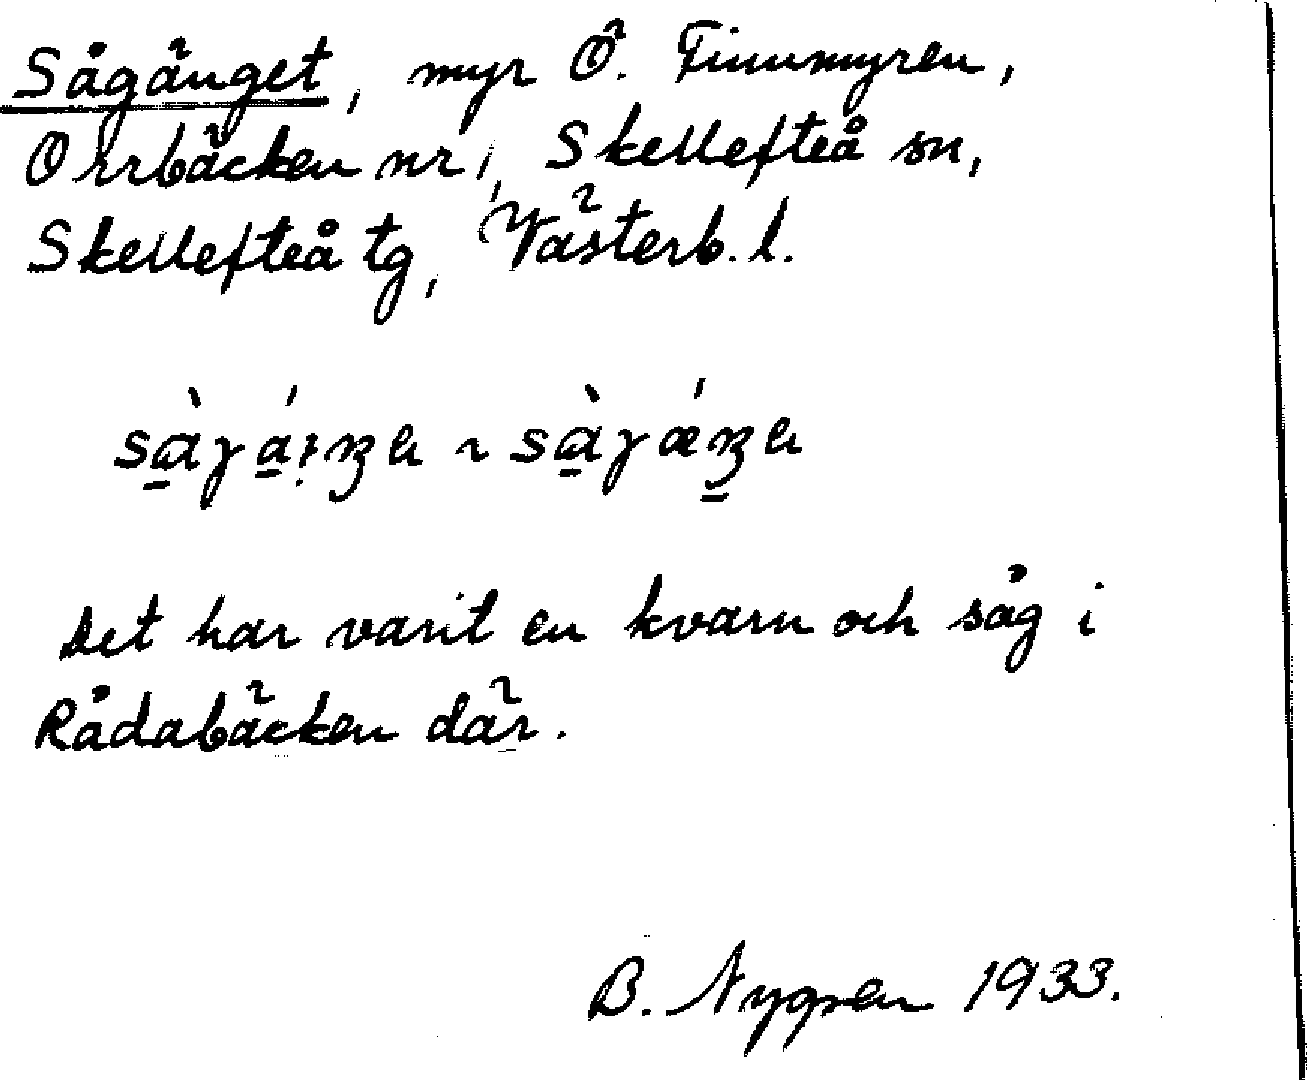 Sågänget, myr Ö. Finnmyren,
Orrbäcken nr 1, Skellefteå sn,
Skellefteå tg, Västerb. l.
Det har varit en kvarn och såg i
Rådabäcken där.
B. Nygren 1933.